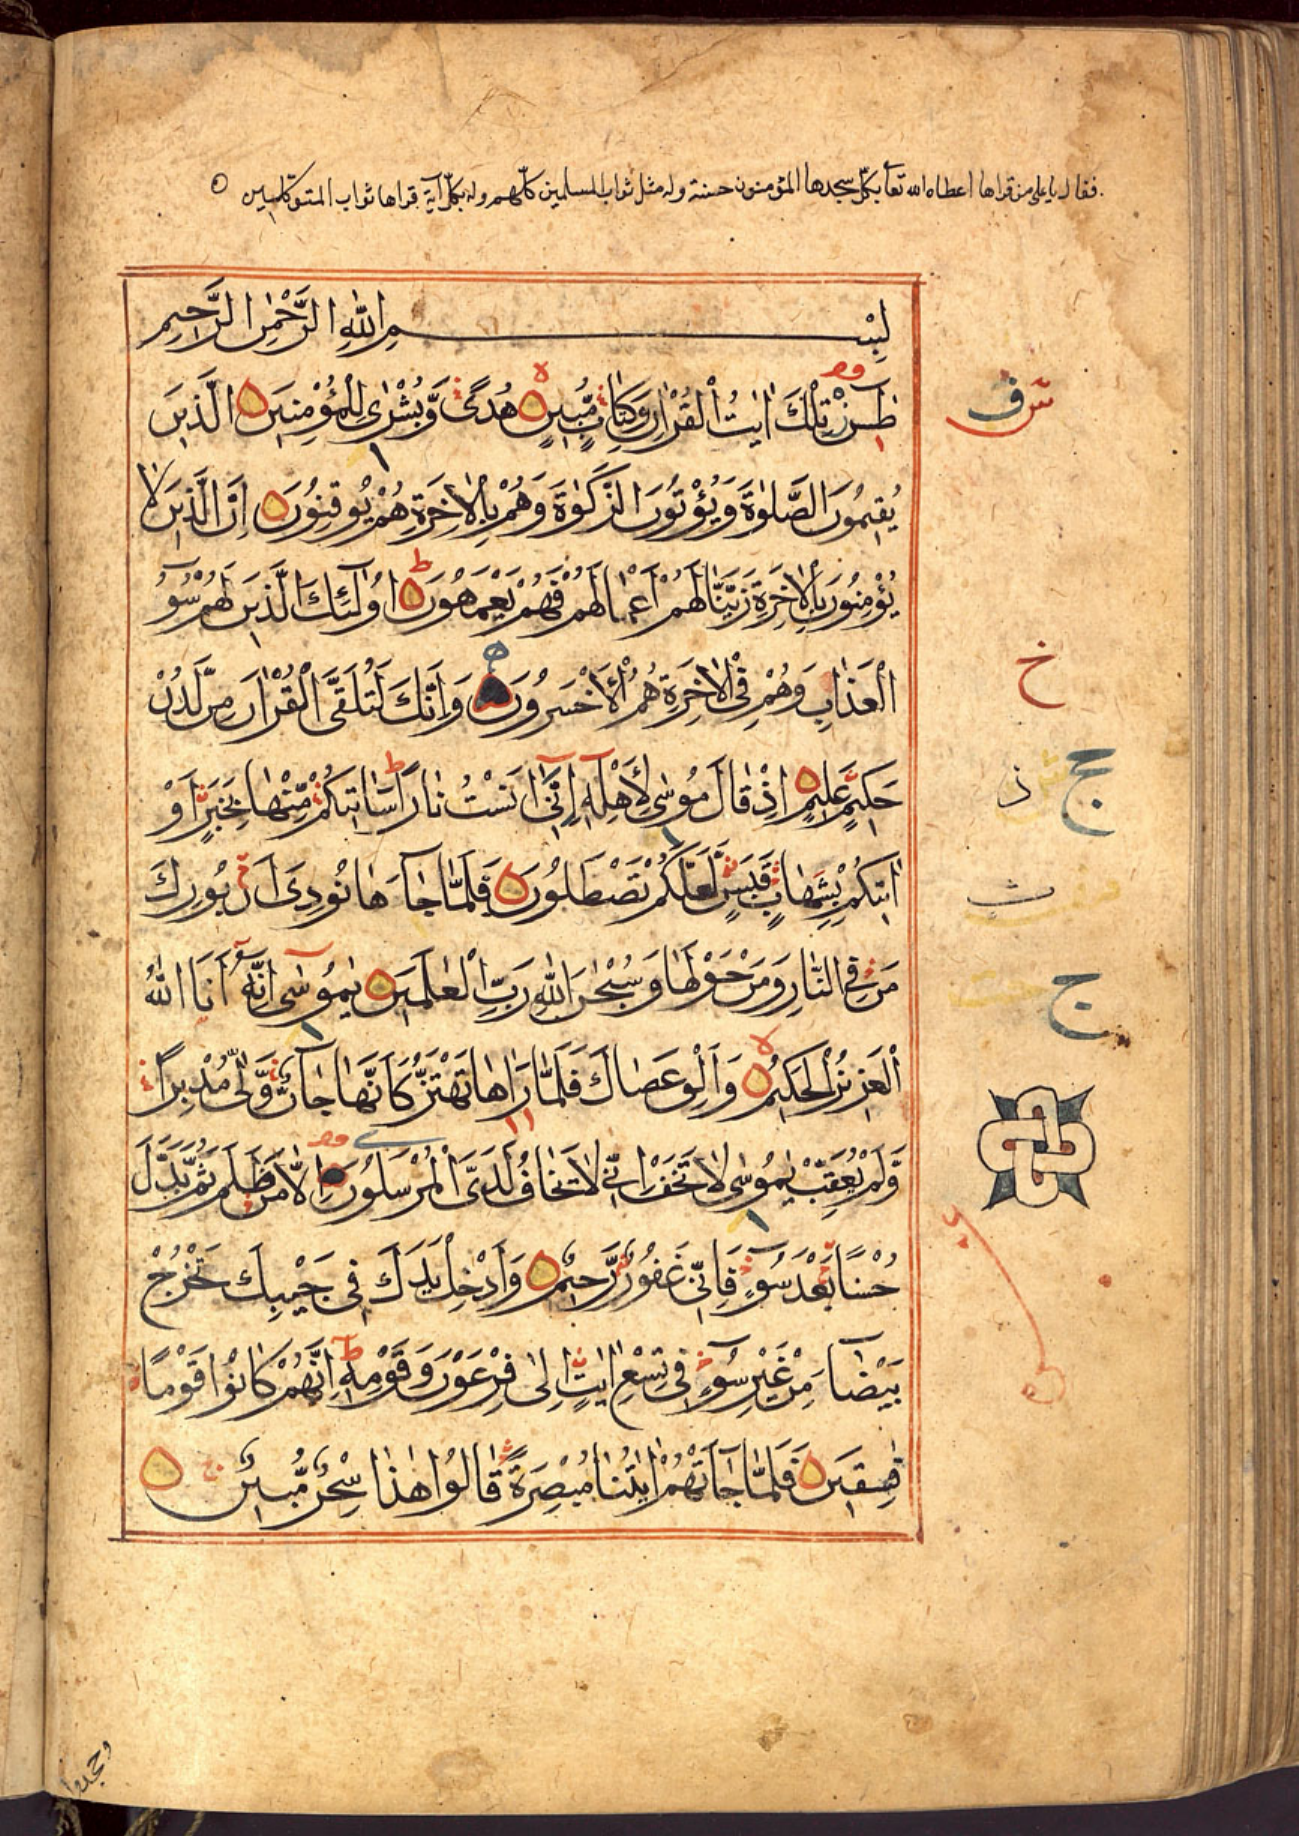 فقال يا على من قراها اعطاه الله تعا بكل سجدها المؤمنون حسنة وله مثل ثواب المسلمين كلهم وله بكل آية قراها ثواب المتوكلين
بِسْمِ اللّٰهِ الرَّحْمٰنِ الرَّحِيمِ
طٰسٓ تِلْكَ اٰيٰتُ الْقُرْاٰنِ وَكِتَابٍ مُّبِينٍ هُدًى وَّبُشْرٰى لِلْمُؤْمِنِينَ الَّذِينَ
يُقِيمُونَ الصَّلٰوةَ وَيُؤْتُونَ الزَّكٰوةَ وَهُمْ بِالْاٰخِرَةِ هُمْ يُوقِنُونَ اِنَّ الَّذِينَ لَا
يُؤْمِنُونَ بِالْاٰخِرَةِ زَيَّنَّا لَهُمْ اَعْمَالَهُمْ فَهُمْ يَعْمَهُونَ اُولٰٓئِكَ الَّذِينَ لَهُمْ سُوٓءُ
الْعَذَابِ وَهُمْ فِى الْاٰخِرَةِ هُمُ الْاَخْسَرُونَ وَاِنَّكَ لَتُلَقَّى الْقُرْاٰنَ مِنْ لَّدُنْ
حَكِيمٍ عَلِيمٍ اِذْ قَالَ مُوسٰى لِاَهْلِهٖٓ اِنِّىٓ اٰنَسْتُ نَارًا سَاٰتِيكُمْ مِّنْهَا بِخَبَرٍ اَوْ
اٰتِيكُمْ بِشِهَابٍ قَبَسٍ لَّعَلَّكُمْ تَصْطَلُونَ فَلَمَّا جَآءَهَا نُودِىَ اَنْ بُورِكَ
مَنْ فِى النَّارِ وَمَنْ حَوْلَهَا وَسُبْحٰنَ اللّٰهِ رَبِّ الْعٰلَمِينَ يٰمُوسٰٓى اِنَّهٗٓ اَنَا اللّٰهُ
الْعَزِيزُ الْحَكِيمُ وَاَلْقِ عَصَاكَ فَلَمَّا رَاٰهَا تَهْتَزُّ كَاَنَّهَا جَآنٌّ وَّلّٰى مُدْبِرًا
وَّلَمْ يُعَقِّبْ يٰمُوسٰى لَا تَخَفْ اِنِّى لَا يَخَافُ لَدَىَّ الْمُرْسَلُونَ اِلَّا مَنْ ظَلَمَ ثُمَّ بَدَّلَ
حُسْنًا بَعْدَ سُوٓءٍ فَاِنِّى غَفُورٌ رَّحِيمٌ وَاَدْخِلْ يَدَكَ فِى جَيْبِكَ تَخْرُجْ
بَيْضَآءَ مِنْ غَيْرِ سُوٓءٍ فِى تِسْعِ اٰيٰتٍ اِلٰى فِرْعَوْنَ وَقَوْمِهٖ اِنَّهُمْ كَانُوا قَوْمًا
فٰسِقِينَ فَلَمَّا جَآءَتْهُمْ اٰيٰتُنَا مُبْصِرَةً قَالُوا هٰذَا سِحْرٌ مُّبِينٌ
خ
ج
ج
وجحدوا